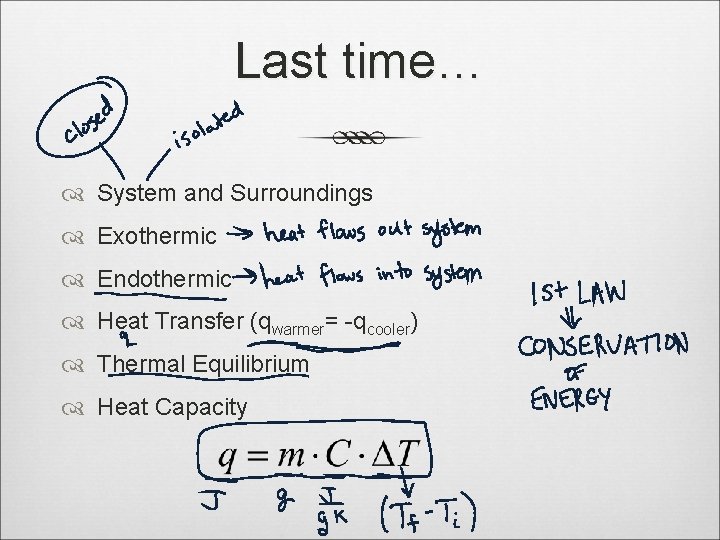 Last time…
closed
isolated
System and Surroundings
Exothermic → heat flows out system
Endothermic → heat flows into system
Heat Transfer (qwarmer= -qcooler)
q
Thermal Equilibrium
Heat Capacity
1st LAW
⇓
CONSERVATION
OF
ENERGY
q = m · C · ΔT
J g J/gK (Tf - Ti)